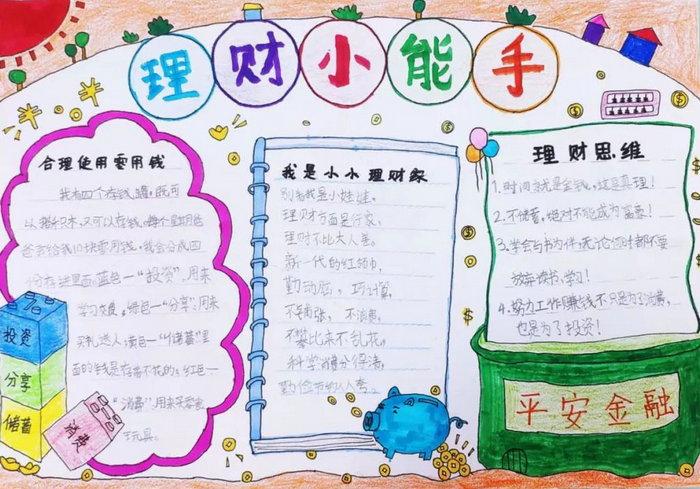 理财小能手
合理使用零用钱
我有四个存钱罐,既可
以当积木,又可以存钱。每个星期爸
爸会给我10块零用钱,我会分成四
份存进里面。蓝色—“投资”,用来
学习
绿色—“分享”,用来
买礼送人;黄色—“储蓄”里
面的钱是存着不花的;红色—
“消费”,用来买零食
玩具。
投资
分享
储蓄
消费
我是小小理财家
别看我是小娃娃,
理财方面是行家,
理财不比大人差。
新一代的红领巾,
勤动脑,巧计算,
不铺张,不浪费,
不攀比来不乱花,
科学消费分得清,
勤俭节约人人夸。
理财思维
1.时间就是金钱,这是真理!
2.不储蓄,绝对不能成为富豪!
3.学会与书为伴,无论何时都不要
放弃读书、学习!
4.努力工作赚钱不只是为了消费,
也是为了投资!
平安金融